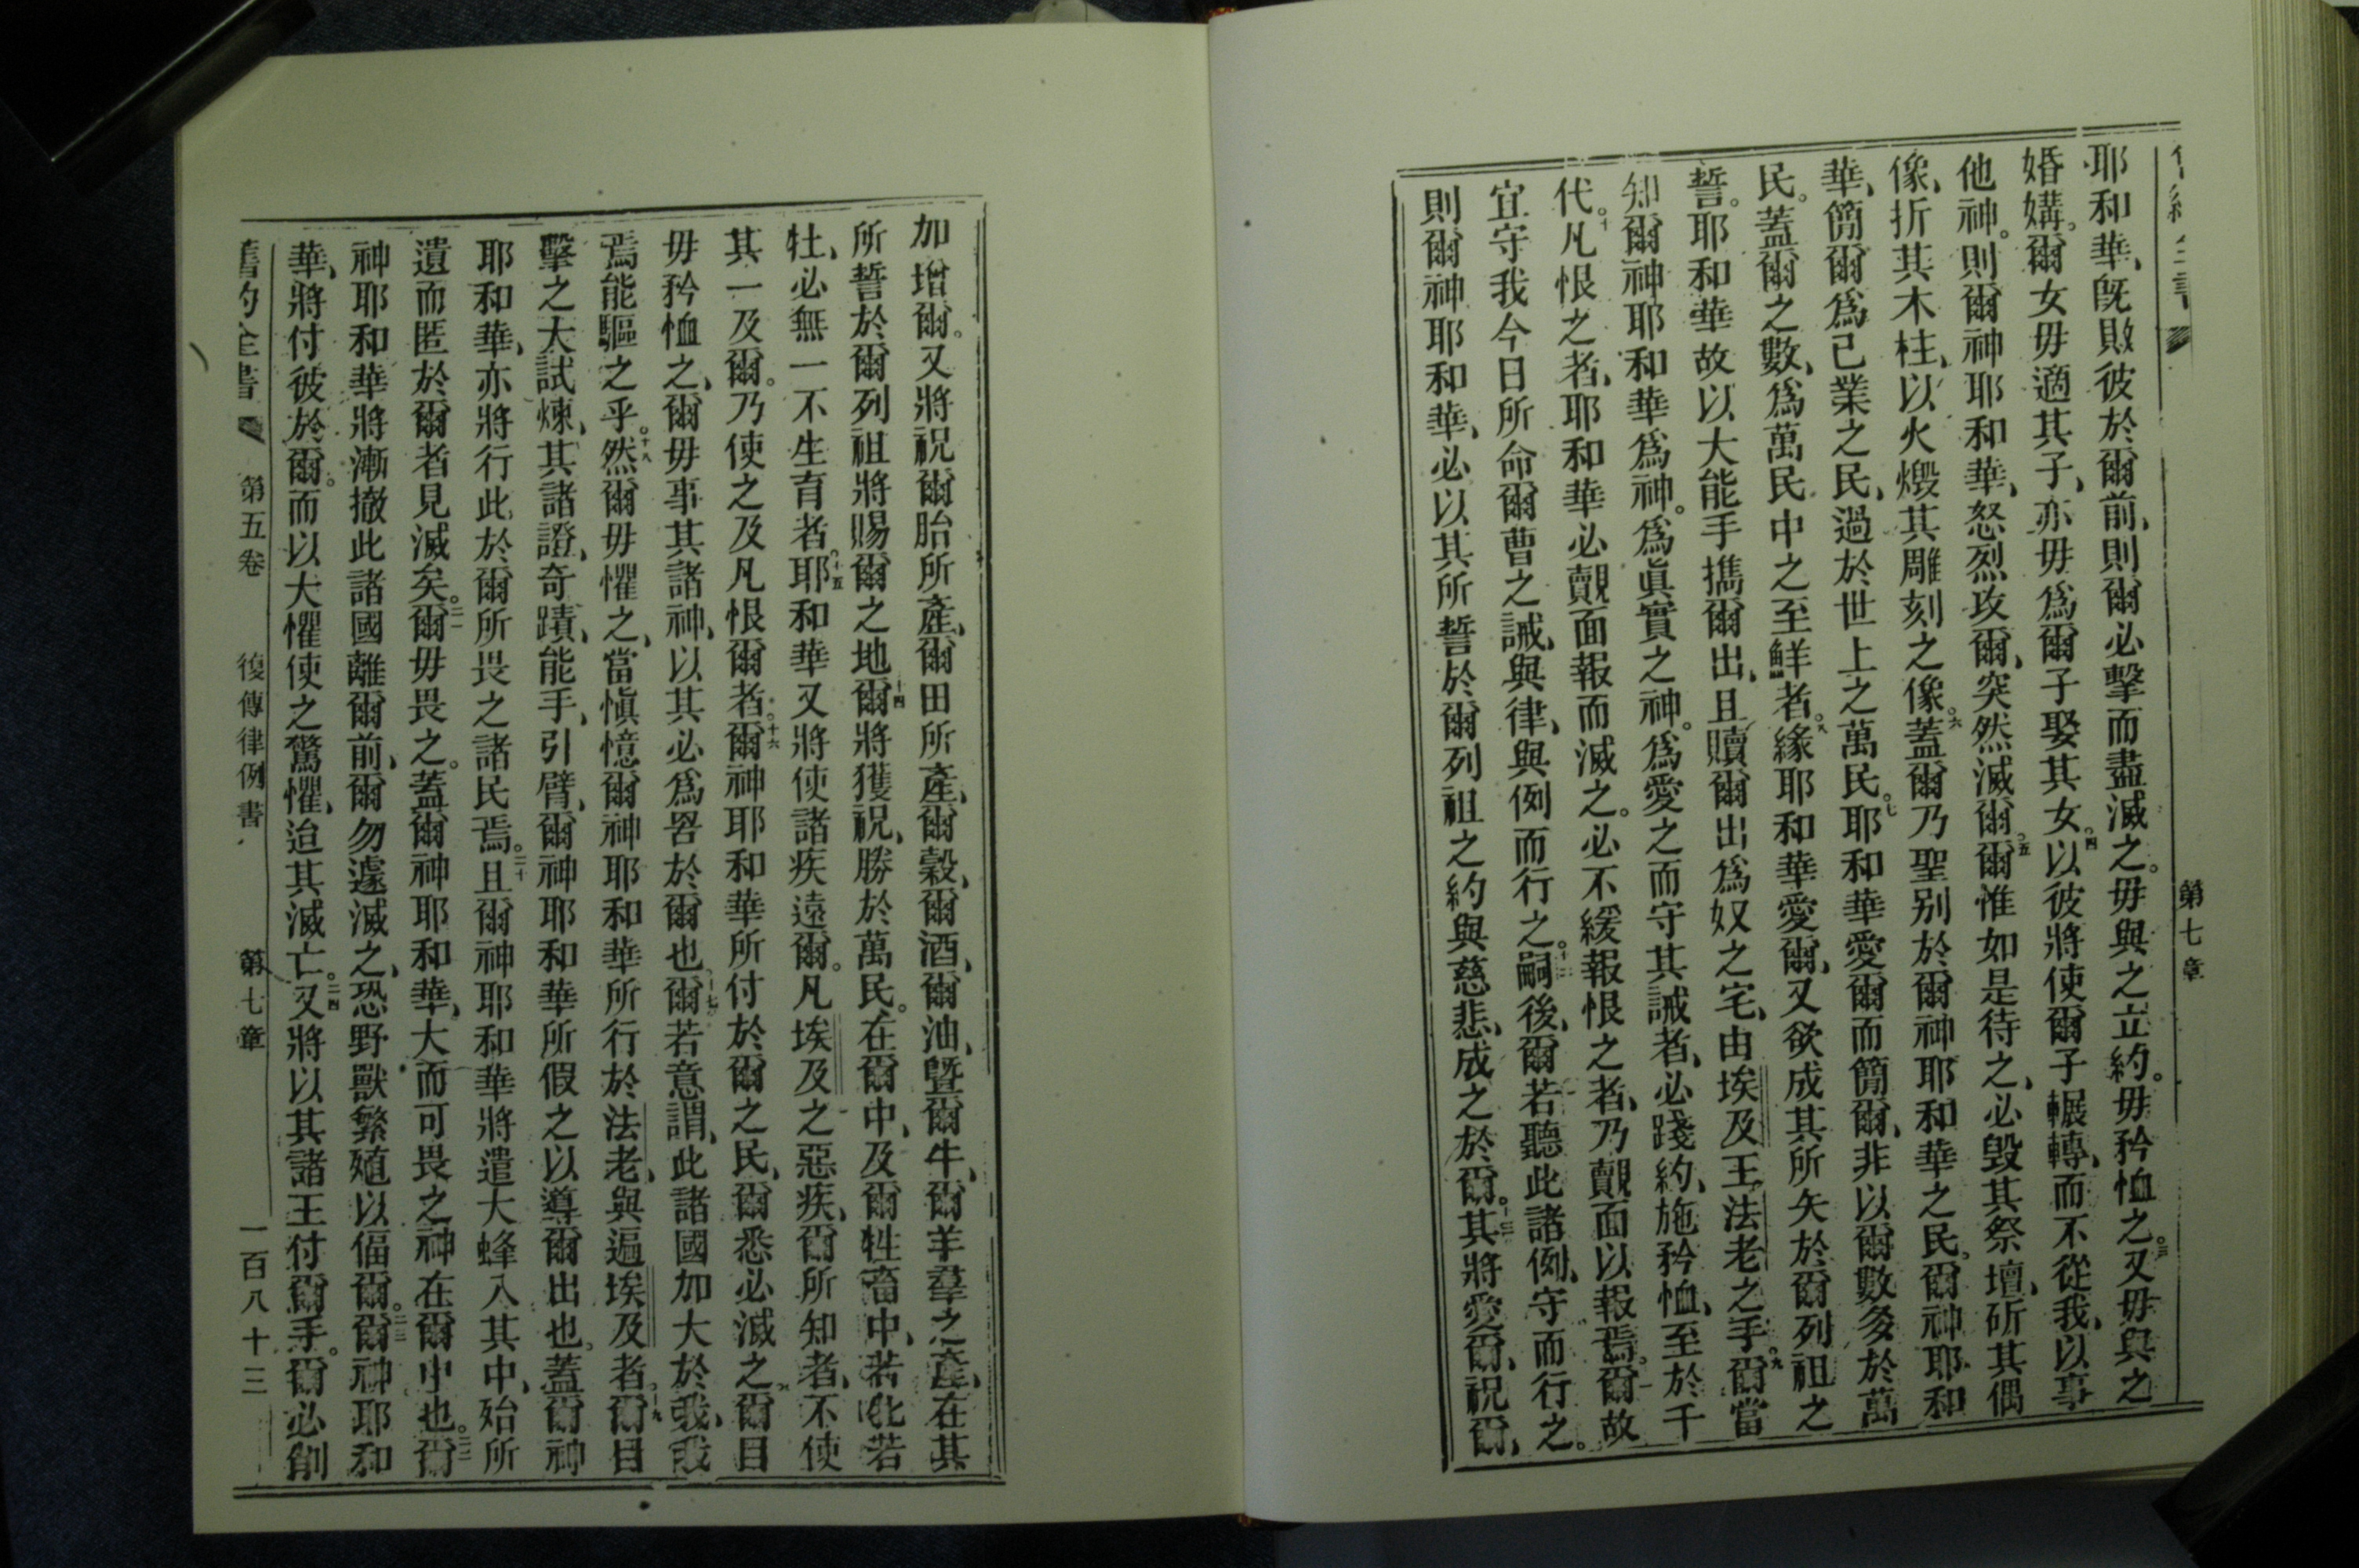 第七章
耶和華、旣敗彼於爾前、則爾必擊而盡滅之。毋與之立約。毋矜恤之。三又毋與之
婚媾。爾女毋適其子、亦毋爲爾子娶其女。四以彼將使爾子輾轉、而不從我、以事
他神。則爾神耶和華、怒烈攻爾、突然滅爾。五爾惟如是待之、必毀其祭壇、斫其偶
像、折其木柱、以火燬其雕刻之像。六蓋爾乃聖別於爾神耶和華之民。爾神耶和
華、簡爾爲己業之民、過於世上之萬民。七耶和華愛爾而簡爾、非以爾數多於萬
民。蓋爾之數、爲萬民中之至鮮者。八緣耶和華愛爾、又欲成其所矢於爾列祖之
誓。耶和華故以大能手擕爾出、且贖爾出爲奴之宅、由埃及王法老之手。九爾當
知爾神耶和華爲神。爲眞實之神。爲愛之而守其誡者、必踐約、施矜恤、至於千
代。十凡恨之者、耶和華必覿面報而滅之。必不緩報恨之者、乃覿面以報焉。爾故
宜守我今日所命爾曹之誡、與律、與例而行之。十二嗣後、爾若聽此諸例、守而行之。
則爾神耶和華、必以其所誓於爾列祖之約與慈悲、成之於爾。十三其將愛爾、祝爾、
加增爾。又將祝爾胎所產、爾田所產、爾穀、爾酒、爾油、曁爾牛、爾羊羣之產、在其
所誓於爾列祖將賜爾之地。十四爾將獲祝、勝於萬民。在爾中、及爾牲畜中、若牝若
牡、必無一不生育者。十五耶和華又將使諸疾遠爾。凡埃及之惡疾、爾所知者、不使
其一及爾。乃使之及凡恨爾者。十六爾神耶和華所付於爾之民、爾悉必滅之。爾目
毋矜恤之、爾毋事其諸神、以其必爲罟於爾也。十七爾若意謂、此諸國加大於我、我
焉能驅之乎。十八然爾毋懼之、當愼憶爾神耶和華所行於法老、與遍埃及者。十九爾目
擊之大試煉、其諸證、奇蹟、能手、引臂、爾神耶和華所假之以導爾出也。蓋爾神
耶和華、亦將行此於爾所畏之諸民焉。二十且爾神耶和華將遣大蜂入其中、殆所
遺而匿於爾者見滅矣。二一爾毋畏之。蓋爾神耶和華、大而可畏之神在爾中也。二二爾
神耶和華將漸撤此諸國離爾前、爾勿遽滅之、恐野獸繁殖以偪爾。二三爾神耶和
華、將付彼於爾。而以大懼使之驚懼、迨其滅亡。二四又將以其諸王付爾手。爾必創
舊約全書 第五卷 復傳律例書 第七章 一百八十三